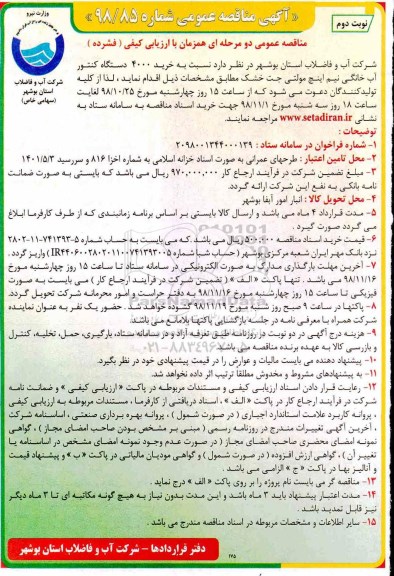 « آگهی مناقصه عمومی شماره ۹۸/۸۵ »
نوبت دوم
وزارت نیرو
شرکت آب و فاضلاب
استان بوشهر
(سهامی خاص)
مناقصه عمومی دو مرحله ای همزمان با ارزیابی کیفی ( فشرده )
شرکت آب و فاضلاب استان بوشهر در نظر دارد نسبت به خرید ۴۰۰۰ دستگاه کنتور
آب خانگی نیم اینچ مولتی جت خشک مطابق مشخصات ذیل اقدام نماید ، لذا از کلیه
تولیدکنندگان دعوت می شود که از ساعت ۱۵ روز چهارشنبه مورخ ۹۸/۱۰/۲۵ لغایت
ساعت ۱۸ روز سه شنبه مورخ ۹۸/۱۱/۱ جهت خرید اسناد مناقصه به سامانه ستاد به
نشانی www.setadiran.ir مراجعه نمایند.
توضیحات :
۱- شماره فراخوان در سامانه ستاد : ۲۰۹۸۰۰۱۳۴۴۰۰۰۱۲۹
۲- محل تامین اعتبار : طرحهای عمرانی به صورت اسناد خزانه اسلامی به شماره اخزا ۸۱۶ و سررسید ۱۴۰۱/۵/۳
۳- مبلغ تضمین شرکت در فرآیند ارجاع کار ۹۷۰,۰۰۰,۰۰۰ ریال می باشد که بایستی به صورت ضمانت
نامه بانکی به نفع این شرکت ارائه گردد.
۴- محل تحویل کالا : انبار امور آبفا بوشهر
۵- مدت قرارداد ۴ ماه می باشد و ارسال کالا بایستی بر اساس برنامه زمانبندی که از طرف کارفرما ابلاغ
می گردد صورت گیرد .
۶- قیمت خرید اسناد مناقصه ۵۰۰,۰۰۰ ریال می باشد .که می بایست به حساب شماره ۵-۷۴۱۳۹۳-۱۱-۲۸۰۲
نزد بانک مهر ایران شعبه مرکزی بوشهر ( حساب شبا شماره ) واریز گردد .
۷- آخرین مهلت بارگذاری مدارک به صورت الکترونیکی در سامانه ستاد تا ساعت ۱۵ روز چهارشنبه مورخ
۹۸/۱۱/۱۶ می باشد . تنها پاکت « الف » ( تضمین شرکت در فرآیند ارجاع کار ) می بایست به صورت
فیزیکی تا ساعت ۱۵ روز چهارشنبه مورخ ۹۸/۱۱/۱۶ به دفتر حراست و امور محرمانه شرکت تحویل گردد.
۸- پاکتها در ساعت ۹ صبح روز شنبه مورخ ۹۸/۱۱/۱۹ گشوده خواهد شد . حضور یک نفر به عنوان نماینده
شرکت همراه با معرفی نامه در جلسه بازگشایی پاکتها بلامانع می باشد.
۹- هزینه درج آگهی در دو نوبت در روزنامه طبق تعرفه آزاد و در سامانه ستاد، بارگیری، حمل، تخلیه، کنترل
و بازرسی کالا به عهده برنده مناقصه می باشد.
۱۰- پیشنهاد دهنده می بایست مالیات و عوارض را در قیمت پیشنهادی خود در نظر بگیرد.
۱۱- به پیشنهادهای مشروط و مخدوش مطلقا ترتیب اثر داده نخواهد شد.
۱۲- رعایت قرار دادن اسناد ارزیابی کیفی و مستندات مربوطه در پاکت « ارزیابی کیفی » و ضمانت نامه
شرکت در فرآیند ارجاع کار در پاکت « الف » ، اسناد دریافتی از کارفرما ، مستندات مربوطه به ارزیابی کیفی
، پروانه کاربرد علامت استاندارد اجباری ( در صورت شمول ) ، پروانه بهره برداری صنعتی ، اساسنامه شرکت
، آخرین آگهی تغییرات مندرج در روزنامه رسمی ( مبنی بر مشخص بودن صاحب امضای مجاز ) ، گواهی
نمونه امضای محضری صاحب امضای مجاز ( در صورت عدم وجود نمونه امضای مشخص در اساسنامه یا
تغییر آن ) ، گواهی ارزش افزوده ( در صورت شمول ) و گواهی مودیان مالیاتی در پاکت « ب » و پیشنهاد قیمت
و آنالیز بها در پاکت « ج » الزامی می باشد .
۱۳- مناقصه گر می بایست نام پروژه را بر روی پاکت « الف » درج نماید .
۱۴- مدت اعتبار پیشنهاد باید ۳ ماه باشد و این مدت بدون نیاز به هیچ گونه مکاتبه ای تا ۳ ماه دیگر
نیز قابل تمدید باشد .
۱۵- سایر اطلاعات و مشخصات مربوطه در اسناد مناقصه مندرج می باشد .
دفتر قراردادها – شرکت آب و فاضلاب استان بوشهر